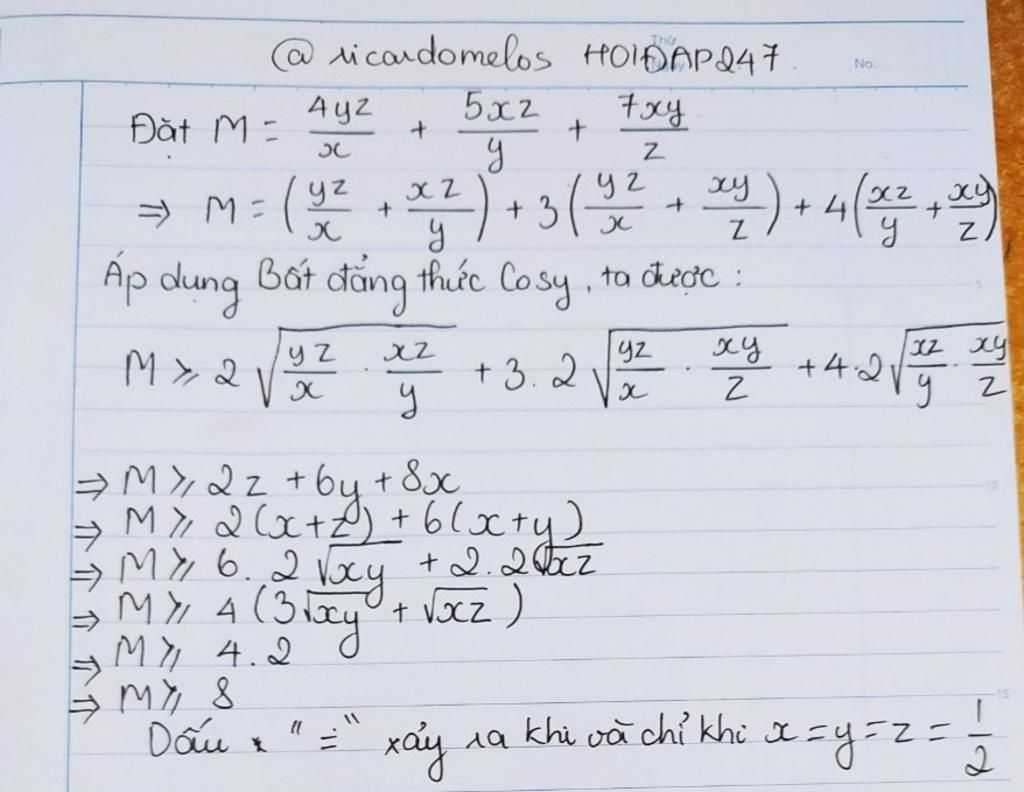 @ ricardomelos HOIĐAP247
Thứ
Ngày
No.
Đặt M = 4yz/x + 5xz/y + 7xy/z
⇒ M = (yz/x + xz/y) + 3(yz/x + xy/z) + 4(xz/y + xy/z)
Áp dụng Bất đẳng thức Cosy, ta được:
M ⩾ 2√(yz/x · xz/y) + 3.2√(yz/x · xy/z) + 4.2√(xz/y · xy/z)
⇒ M ⩾ 2z + 6y + 8x
⇒ M ⩾ 2(x+z) + 6(x+y)
⇒ M ⩾ 6.2√xy + 2.2√xz
⇒ M ⩾ 4(3√xy + √xz)
⇒ M ⩾ 4.2
⇒ M ⩾ 8
Dấu "=" xảy ra khi và chỉ khi x = y = z = 1/2
5
10
15